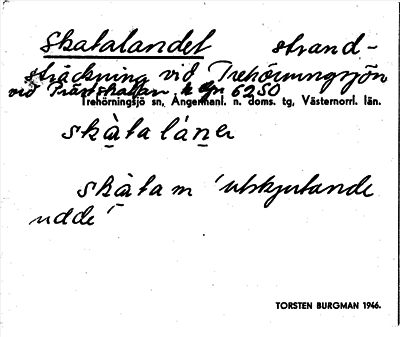 Skatalandet strand-
sträckning vid Trehörningsjön
vid Prästskatan k bgr 6250
Trehörningsjö sn, Ångermanl. n. doms. tg, Västernorrl. län.
skàtaláne
skàtam 'utskjutande
udde'
TORSTEN BURGMAN 1946.